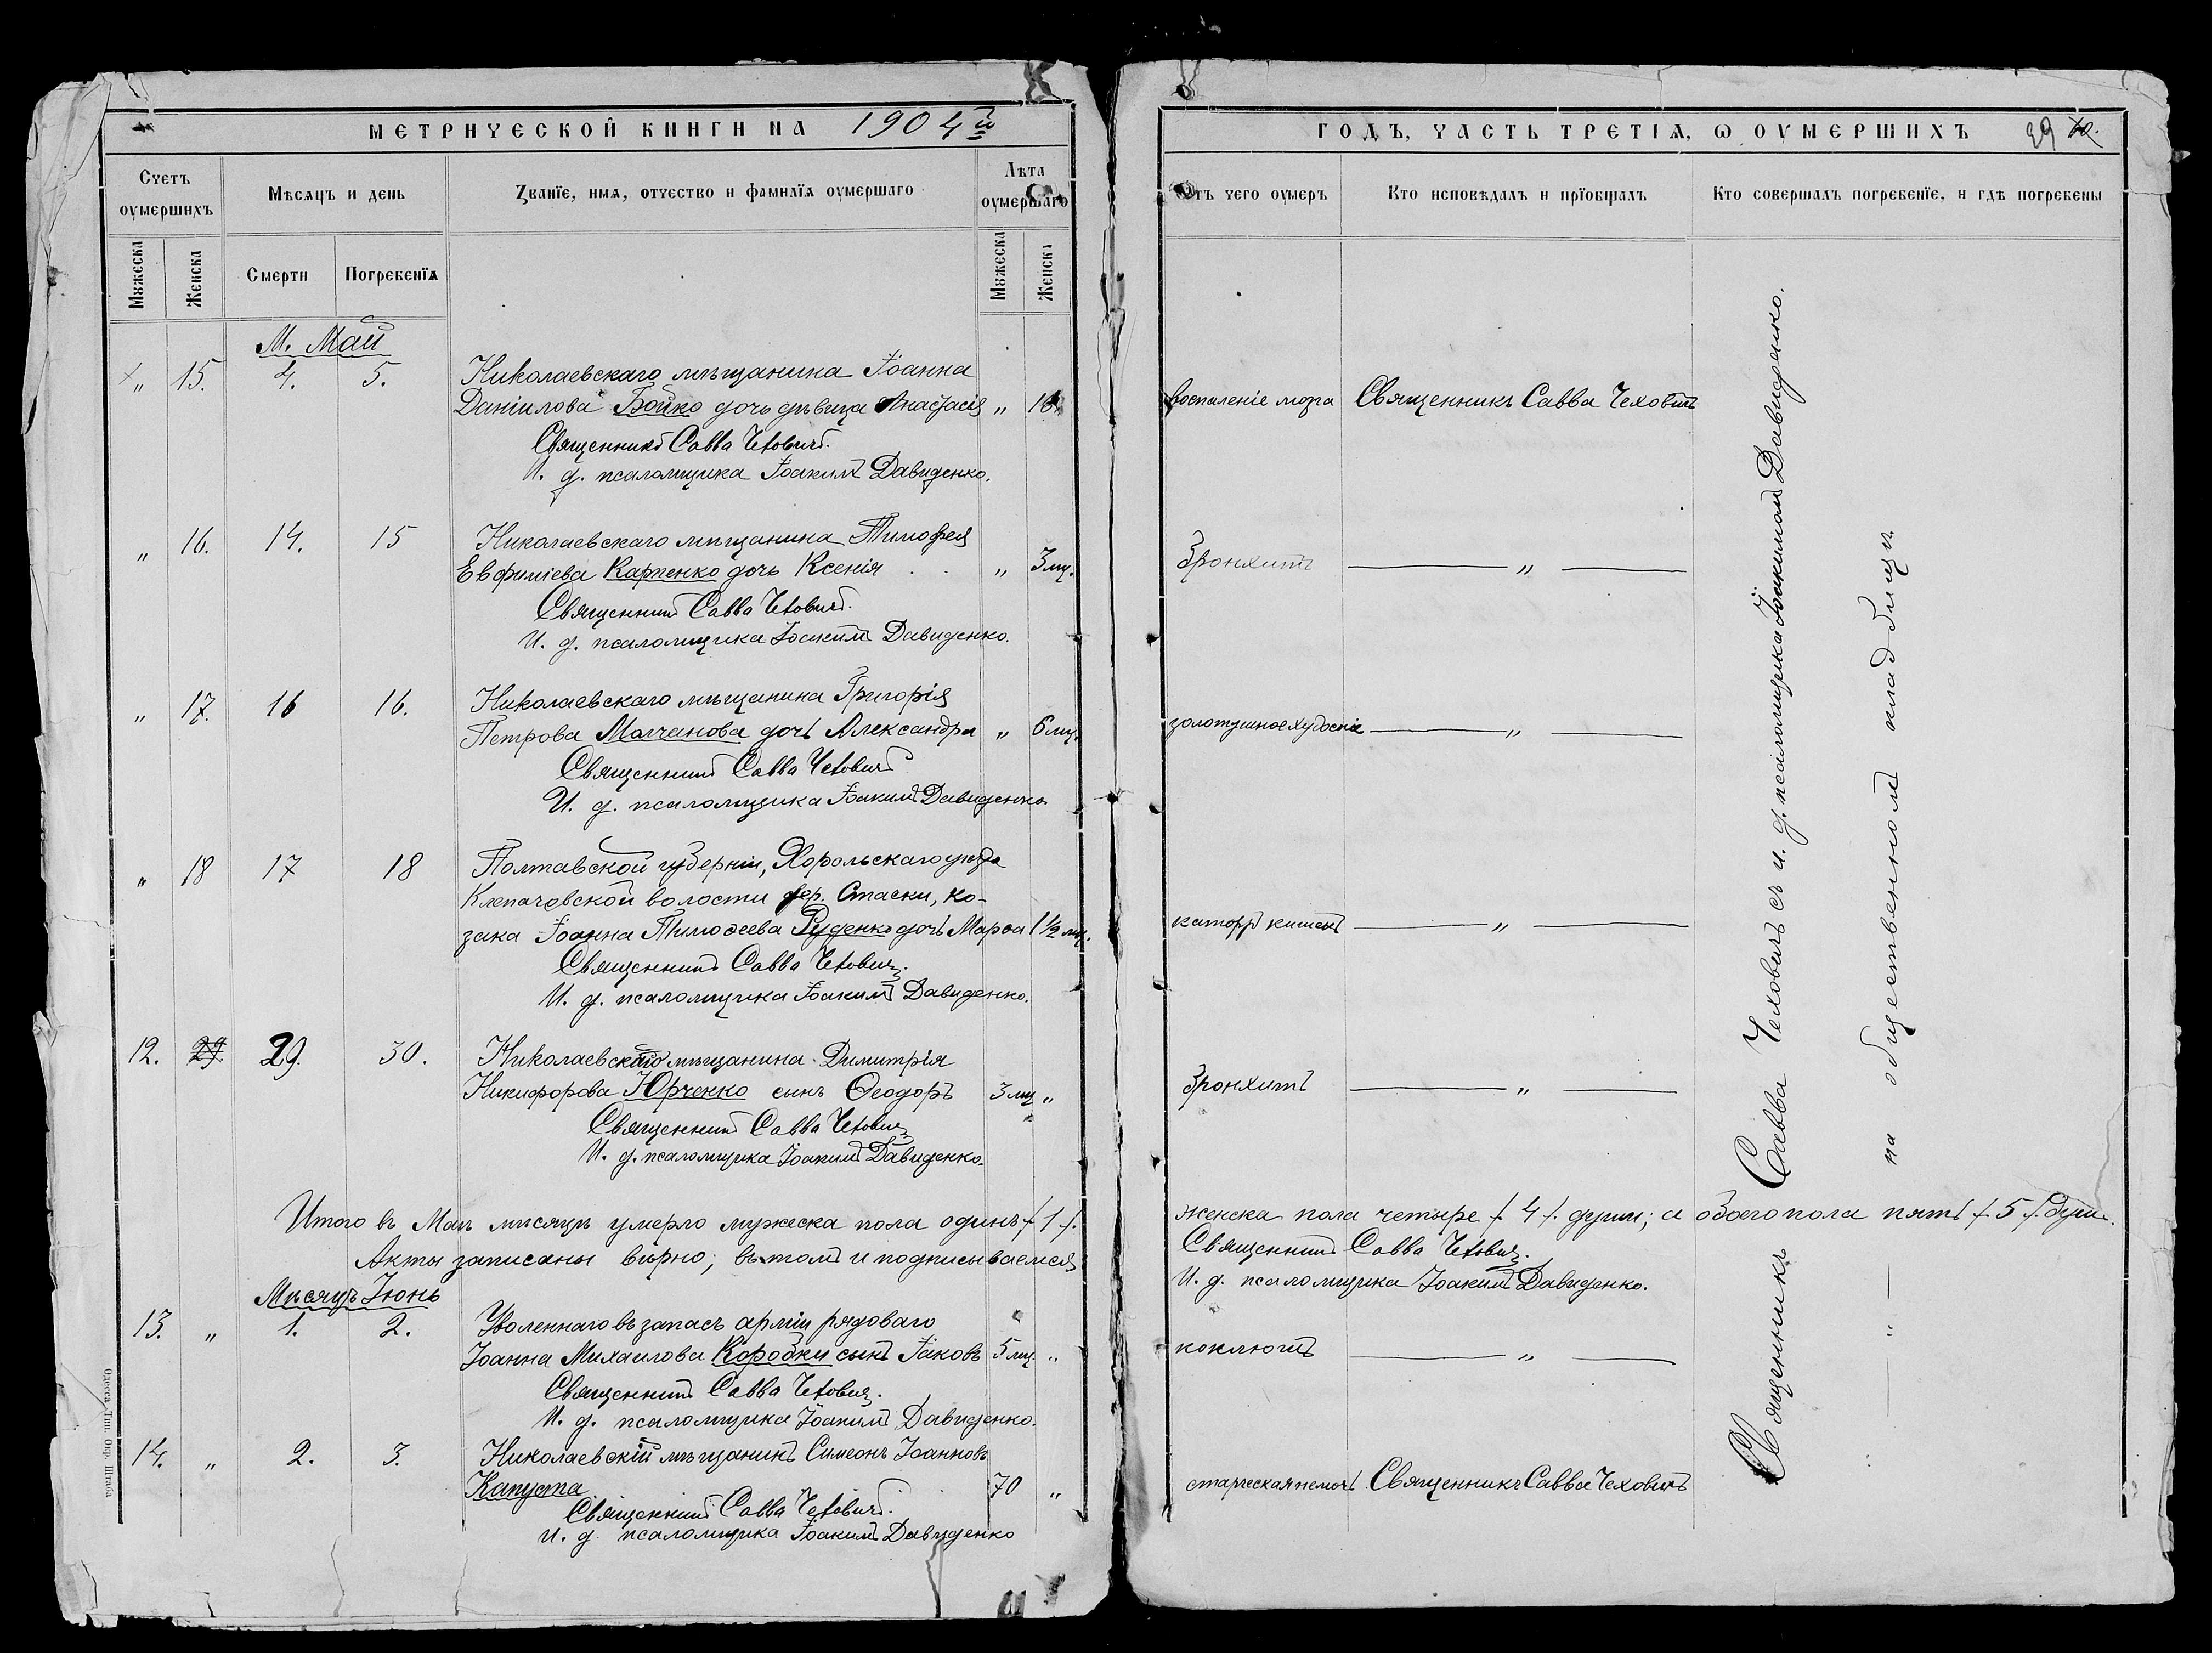 МЕТРИЧЕСКОЙ КНИГИ НА 1904й
Счетъ оумершихъ
Мѣсяцъ и день
Званіе, имя, отчество и фамилія оумершаго
Лѣта оумершаго
Мужеска
Женска
Смерти
Погребенія
Мужеска
Женска
М. Май
" 15. 4. 5. Николаевскаго мѣщанина Іоанна
Даніилова Бойко дочь дѣвица Анастасія "
Священникъ Савва Чеховичъ.
И. д. псаломщика Іоакимъ Давиденко.
" 16. 14. 15 Николаевскаго мѣщанина Тимофея
Евфиміева Карпенко дочь Ксенія " 3 мц.
Священникъ Савва Чеховичъ.
И. д. псаломщика Іоакимъ Давиденко.
" 17. 16 16. Николаевскаго мѣщанина Григорія
Петрова Молчанова дочь Александра " 6 мц.
Священникъ Савва Чеховичъ
И. д. псаломщика Іоакимъ Давиденко
" 18 17 18 Полтавской губерніи, Хорольскаго уѣзда
Клепачевской волости дер. Стаски, ко-
зака Іоанна Тимоѳеева Руденко дочь Марѳа 1 1/2 мц.
Священникъ Савва Чеховичъ.
И. д. псаломщика Іоакимъ Давиденко.
12. 29. 29. 30. Николаевскаго мѣщанина Димитрія
Никифорова Юрченко сынъ Ѳеодоръ 3 мц "
Священникъ Савва Чеховичъ
И. д. псаломщика Іоакимъ Давиденко.
Итого въ Маѣ мѣсяцѣ умерло мужеска пола одинъ /. 1 /.
Акты записаны вѣрно; въ томъ и подписываемся
Мѣсяцъ Іюнь
13. " 1. 2. Уволеннаго въ запасъ арміи рядоваго
Іоанна Михаилова Коробки сынъ Іаковъ 5 мц. "
Священникъ Савва Чеховичъ.
И. д. псаломщика Іоакимъ Давиденко.
14. " 2. 3. Николаевскій мѣщанинъ Симеонъ Іоанновъ
Капуста 70 "
Священникъ Савва Чеховичъ.
И. д. псаломщика Іоакимъ Давиденко
Одесса Тип. Окр. Штаба
ГОДЪ, ЧАСТЬ ТРЕТІЯ, Ѡ ОУМЕРШИХЪ 39
Отъ чего оумеръ
Кто исповѣдалъ и пріобщалъ
Кто совершалъ погребеніе, и гдѣ погребены
воспаленіе мозга Священникъ Савва Чеховичъ
бронхитъ — " —
золотушное худосочіе — " —
катарръ кишекъ — " —
бронхитъ — " —
женска пола четыре /. 4 /. души; а обоего пола пять /. 5 /. душъ.
Священникъ Савва Чеховичъ.
И. д. псаломщика Іоакимъ Давиденко.
коклюшъ — " —
старческая немочь Священникъ Савва Чеховичъ
Священникъ Савва Чеховичъ съ и. д. псаломщика Іоакимомъ Давиденко.
— " — на общественномъ кладбищѣ.